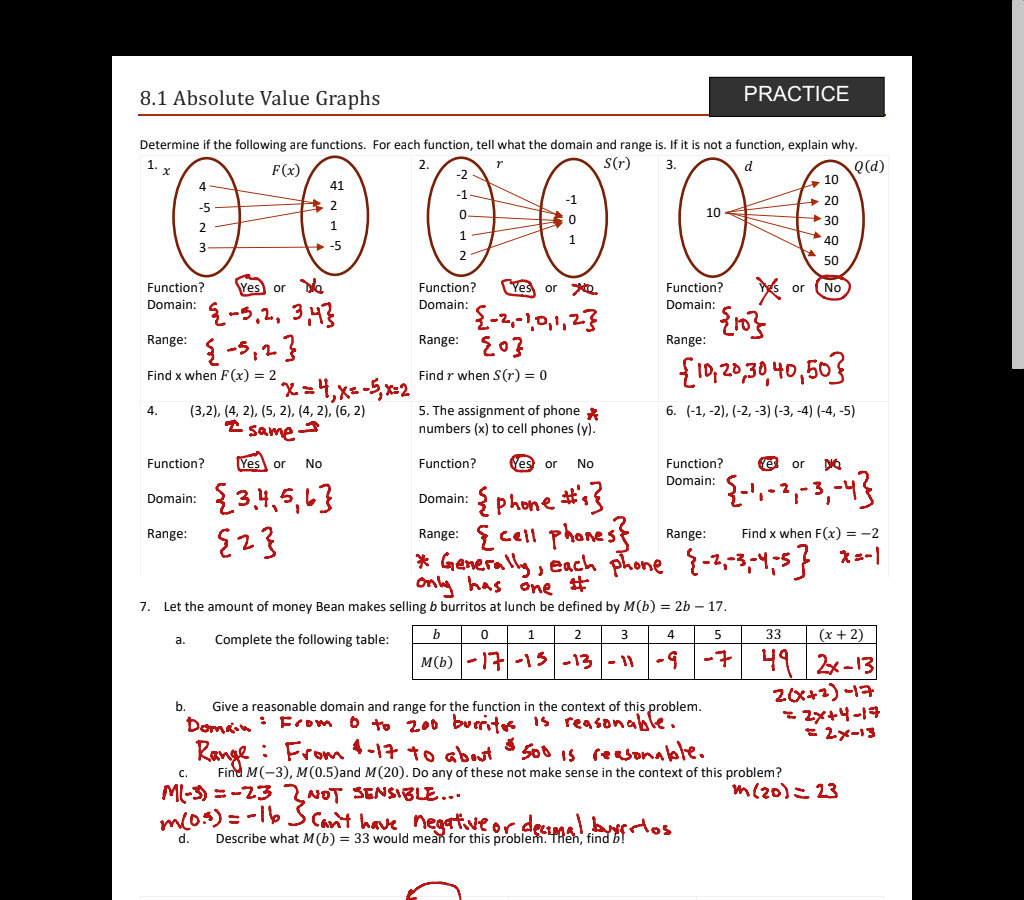 8.1 Absolute Value Graphs
PRACTICE
Determine if the following are functions. For each function, tell what the domain and range is. If it is not a function, explain why.
1. x F(x)
4 41
-5 2
2 1
3 -5
Function? Yes or No
Domain: {-5,2, 3,4}
Range: {-5,2}
Find x when F(x) = 2
x=4, x=-5, x=2
2. r S(r)
-2
-1 -1
0 0
1 1
2
Function? Yes or No
Domain: {-2,-1,0,1,2}
Range: {0}
Find r when S(r) = 0
3. d Q(d)
10 10
20
30
40
50
Function? Yes or No
Domain: {10}
Range:
{10,20,30,40,50}
4. (3,2), (4, 2), (5, 2), (4, 2), (6, 2)
same
Function? Yes or No
Domain: {3,4,5,6}
Range: {2}
5. The assignment of phone *
numbers (x) to cell phones (y).
Function? Yes or No
Domain: {phone #'s}
Range: {cell phones}
* Generally, each phone
only has one #
6. (-1, -2), (-2, -3) (-3, -4) (-4, -5)
Function? Yes or No
Domain: {-1,-2,-3,-4}
Range: Find x when F(x) = −2
{-2,-3,-4,-5} x=-1
7. Let the amount of money Bean makes selling b burritos at lunch be defined by M(b) = 2b − 17.
a. Complete the following table:
b 0 1 2 3 4 5 33 (x + 2)
M(b) -17 -15 -13 -11 -9 -7 49 2x-13
2(x+2)-17
= 2x+4-17
= 2x-13
b. Give a reasonable domain and range for the function in the context of this problem.
Domain: From 0 to 200 burritos is reasonable.
Range: From $-17 to about $500 is reasonable.
c. Find M(−3), M(0.5)and M(20). Do any of these not make sense in the context of this problem?
M(-3) = -23 } NOT SENSIBLE... m(20) = 23
m(0.5) = -16 } Can't have negative or decimal burritos
d. Describe what M(b) = 33 would mean for this problem. Then, find b!